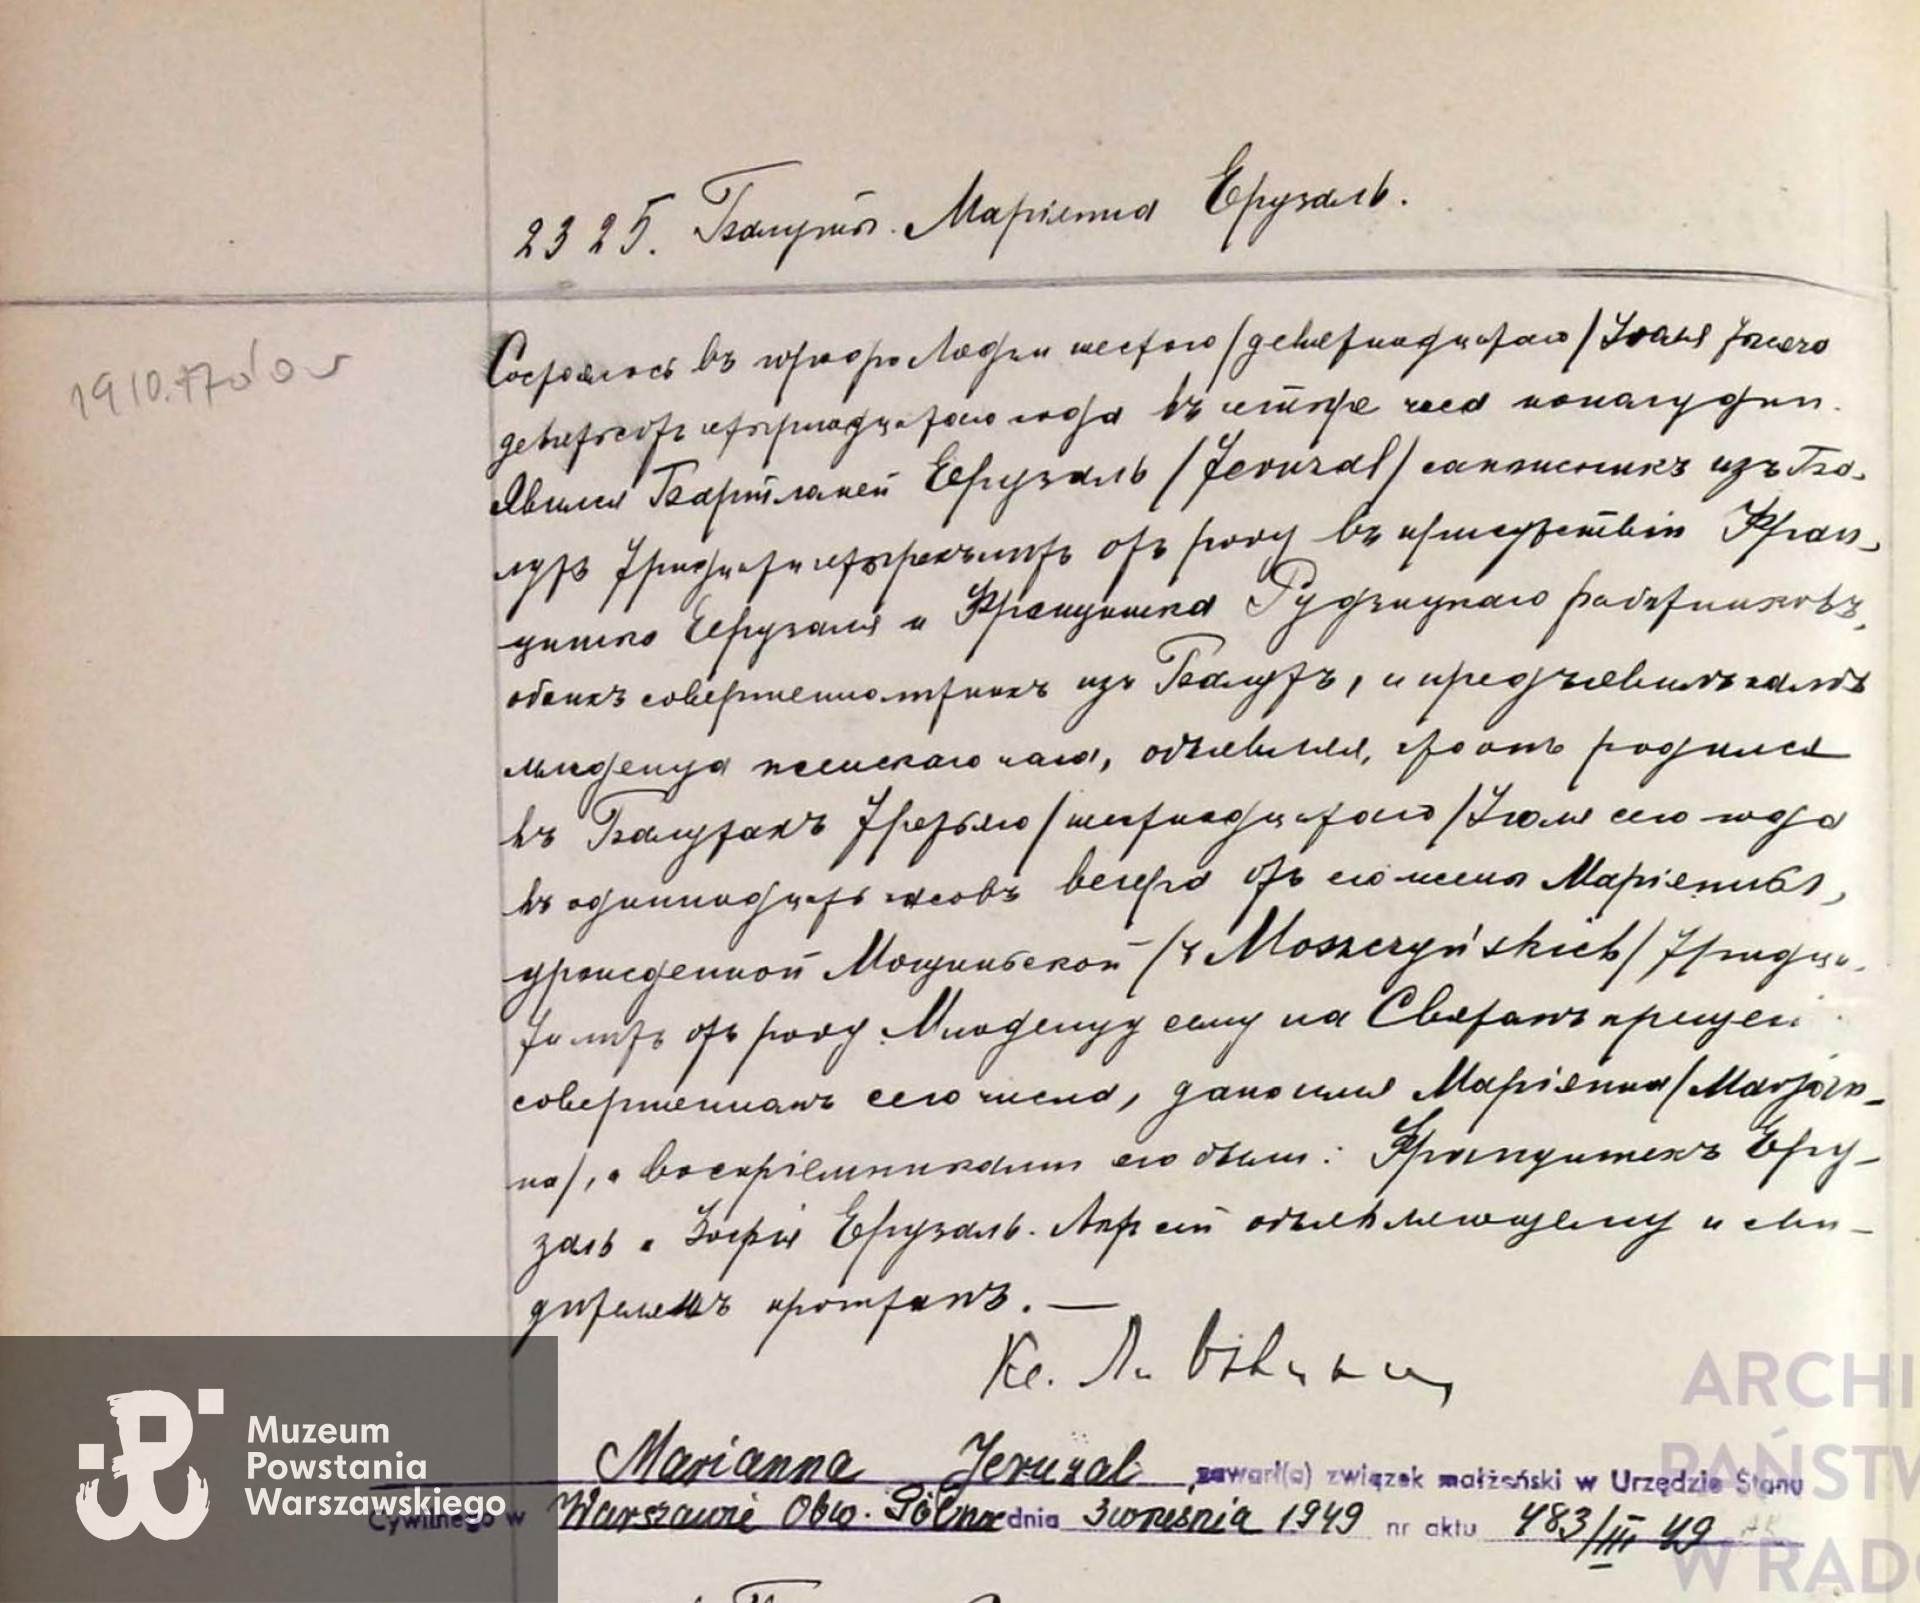 2325. Балуты. Марiанна Ерузаль.
1910. Łódź
Состоялось въ приходѣ Лодзи шестого /девятнадцатаго/ Iюля тысяча
девятьсотъ четырнадцатаго года въ четыре часа пополудни.
Явился Бартламей Ерузаль /Jeruzal/ сапожникъ изъ Ба-
лутъ тридцати четырехъ лѣтъ отъ роду въ присутствiи Фран-
цишка Ерузаля и Францишка Рудзицкаго работниковъ,
обоихъ совершеннолѣтнихъ изъ Балутъ, и предъявилъ намъ
младенца женскаго пола, объявляя, что онъ родился
въ Балутахъ третьяго /шестнадцатаго/ Iюля сего года
въ одиннадцать часовъ вечера отъ его жены Марiанны,
урожденной Мощинской /z Moszczyńskich/ тридца-
ти лѣтъ отъ роду. Младенцу сему на Святомъ крещенi
совершенномъ сего числа, дано имя Марiанна /Marjan-
na/, а воспрiемниками его были: Францишекъ Еру-
заль и Зофiя Ерузаль. Актъ сей объявляющему и сви-
дѣтелямъ прочитанъ. —
Кс.
Marianna Jeruzal, zawarł(a) związek małżeński w Urzędzie Stanu
Cywilnego w Warszawie Obw. Północ dnia 3 września 1949 nr aktu 483/III 49
Muzeum
Powstania
Warszawskiego
ARCHI
PAŃSTW
W RADO